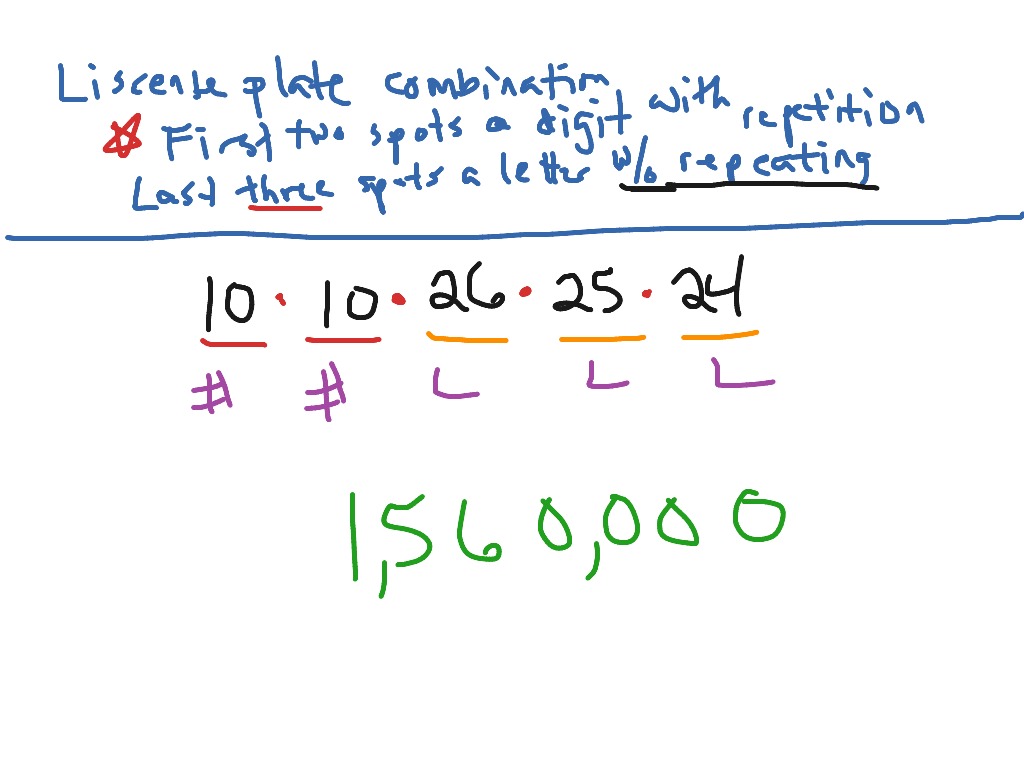 Liscense plate combination
First two spots a digit with repetition
Last three spots a letter w/o repeating
10 · 10 · 26 · 25 · 24
# # L L L
1,560,000